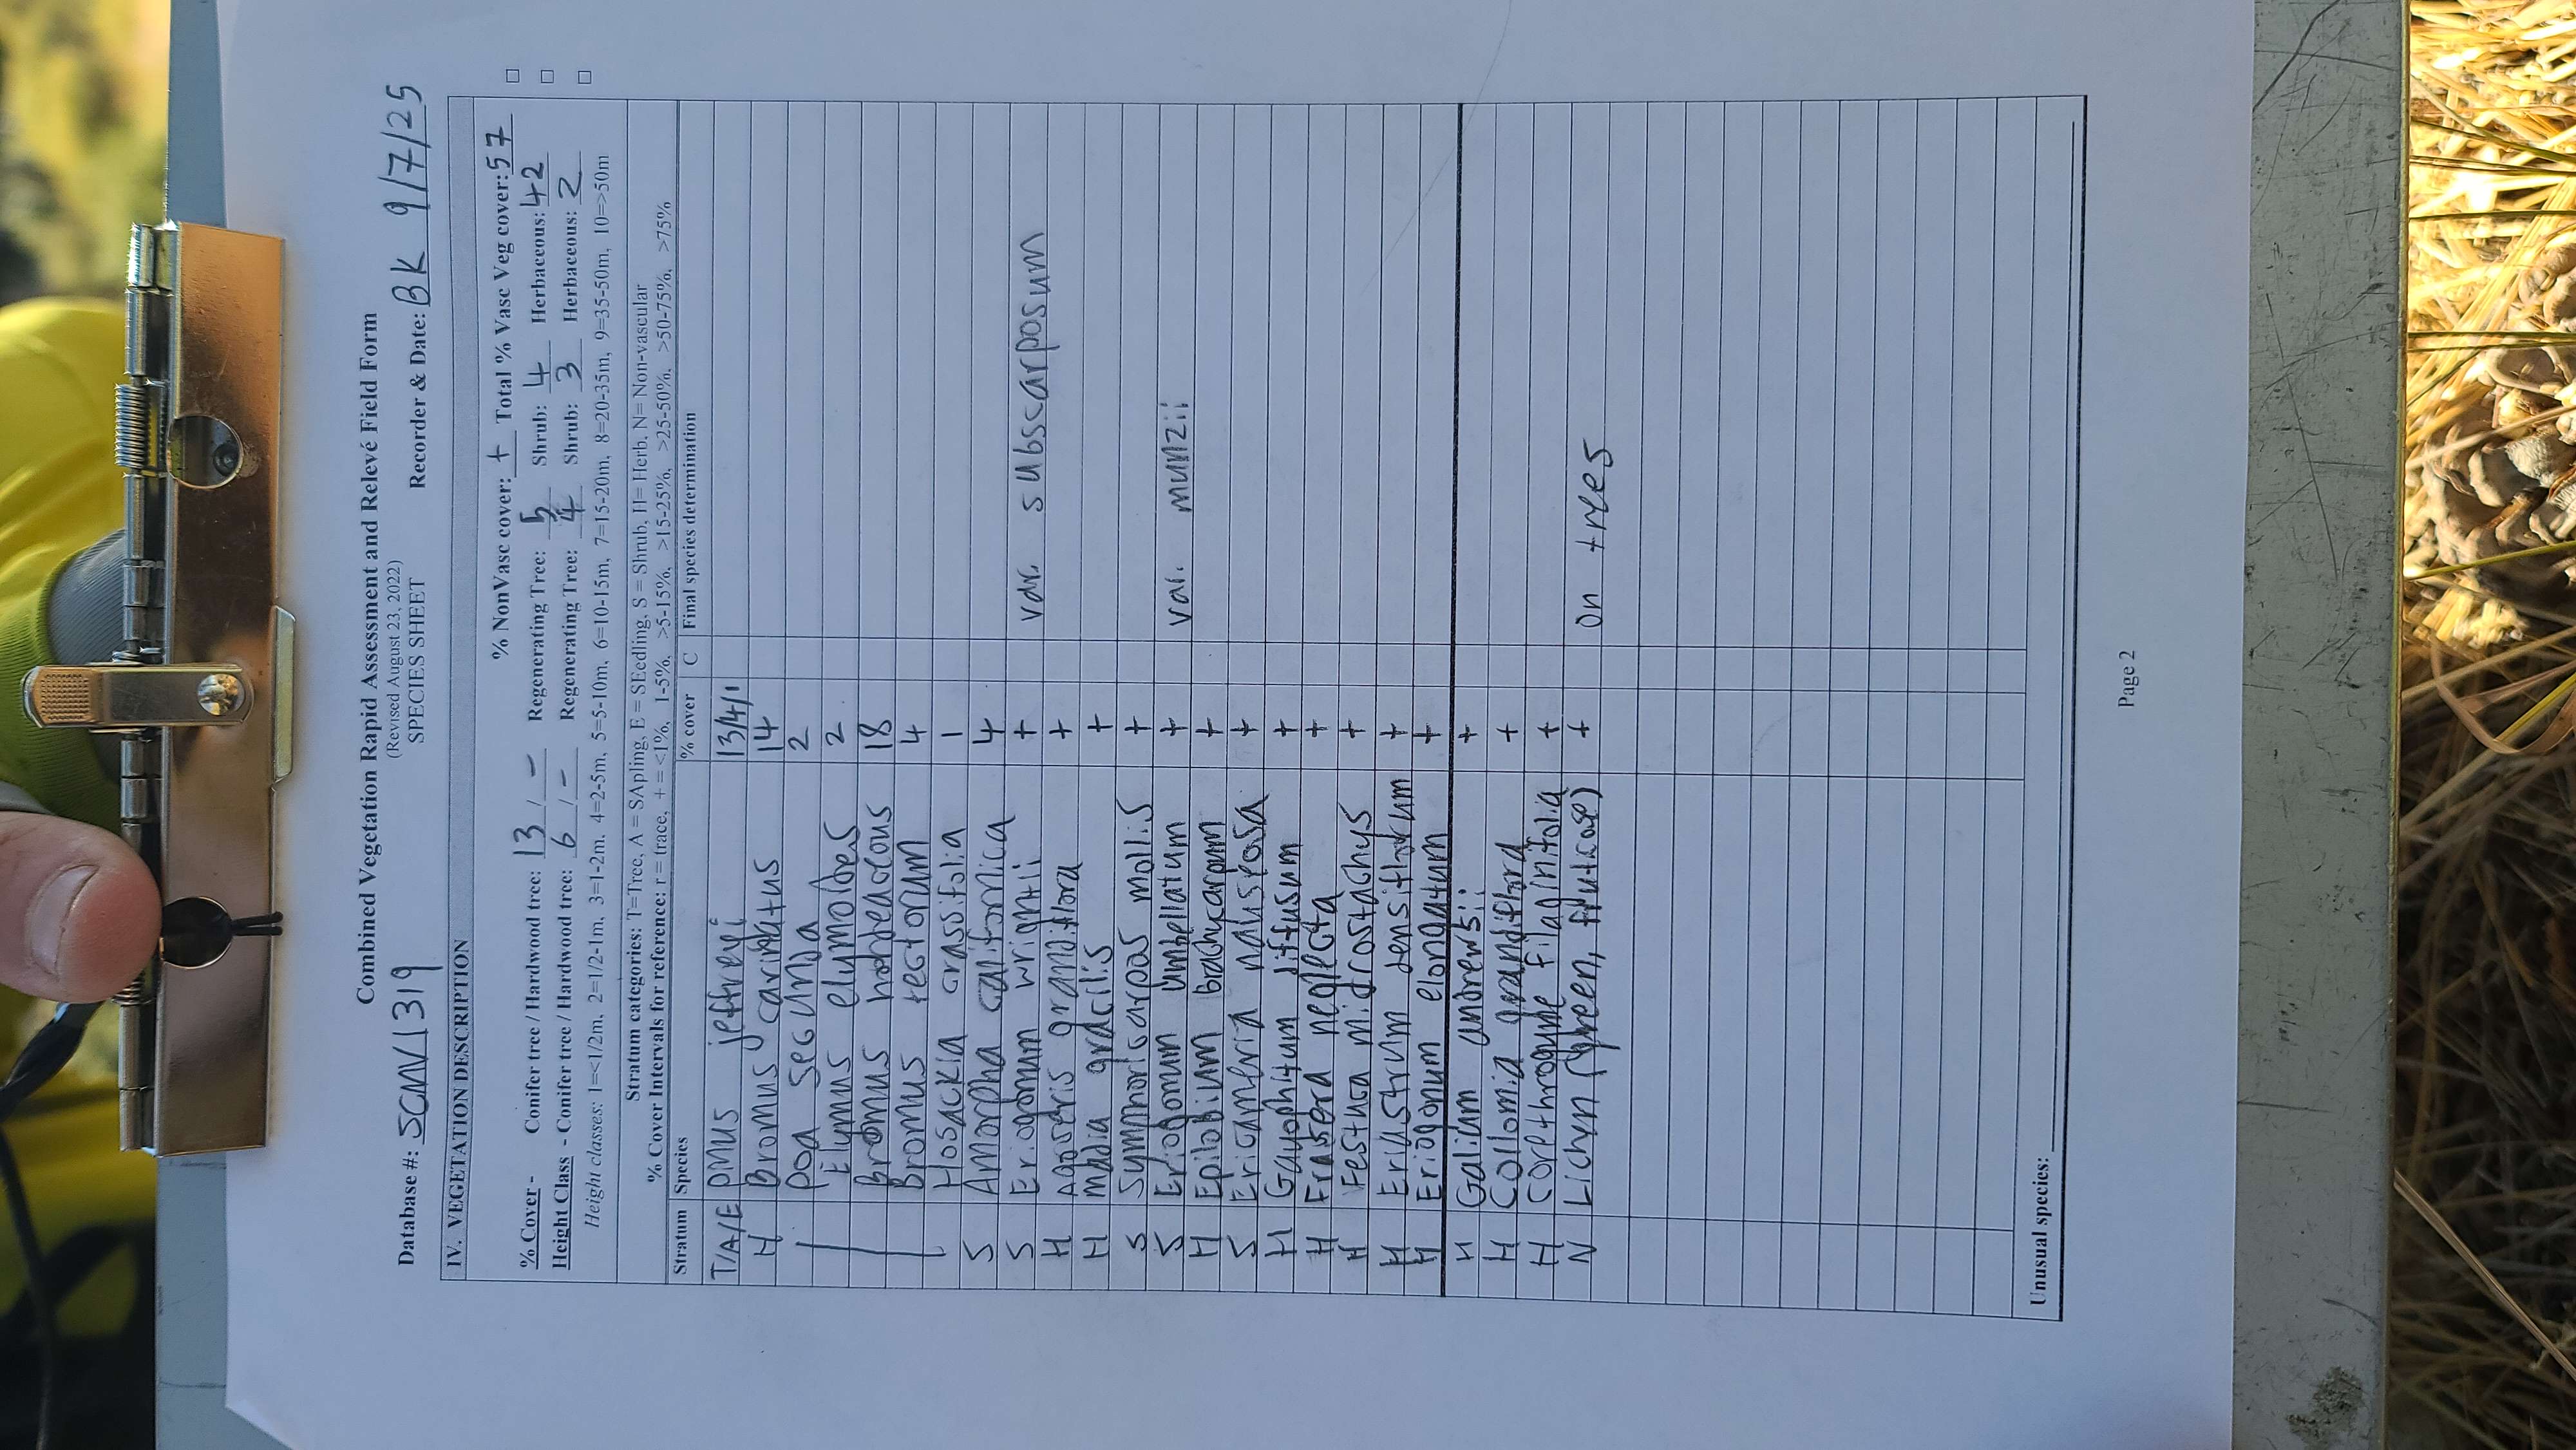 Combined Vegetation Rapid Assessment and Relevé Field Form
(Revised August 23, 2022)
SPECIES SHEET
Database #: SGMV1319 Recorder & Date: BK 9/7/25
IV. VEGETATION DESCRIPTION
% NonVasc cover: + Total % Vasc Veg cover: 57
% Cover - Conifer tree / Hardwood tree: 13 / - Regenerating Tree: 5 Shrub: 4 Herbaceous: 42
Height Class - Conifer tree / Hardwood tree: 6 / - Regenerating Tree: 4 Shrub: 3 Herbaceous: 2
Height classes: 1=<1/2m, 2=1/2-1m, 3=1-2m, 4=2-5m, 5=5-10m, 6=10-15m, 7=15-20m, 8=20-35m, 9=35-50m, 10=>50m
Stratum categories: T=Tree, A = SApling, E = SEedling, S = Shrub, H= Herb, N= Non-vascular
% Cover Intervals for reference: r = trace, + = <1%, 1-5%, >5-15%, >15-25%, >25-50%, >50-75%, >75%
Stratum Species % cover C Final species determination
T/A/E Pinus jeffreyi 13/4/1
H Bromus carinatus 14
Poa secunda 2
Elymus elymoides 2
Bromus hordeaceous 18
Bromus tectorum 4
Hosackia crassifolia 1
S Amorpha californica 4
S Eriogonum wrightii + var. subscarposum
H Agoseris grandiflora +
H Madia gracilis +
S Symphoricarpos mollis +
S Eriogonum umbellatum + var. munzii
H Epilobium brachycarpum +
S Ericameria nauseosa +
H Gayophytum diffusum +
H Frasera neglecta +
H Festuca microstachys +
H Eriastrum densiflorum +
H Eriogonum elongatum +
H Galium andrewsii +
H Collomia grandiflora +
H Corethrogyne filaginifolia +
N Lichyn (green, fruticose) + on trees
Unusual species:
Page 2